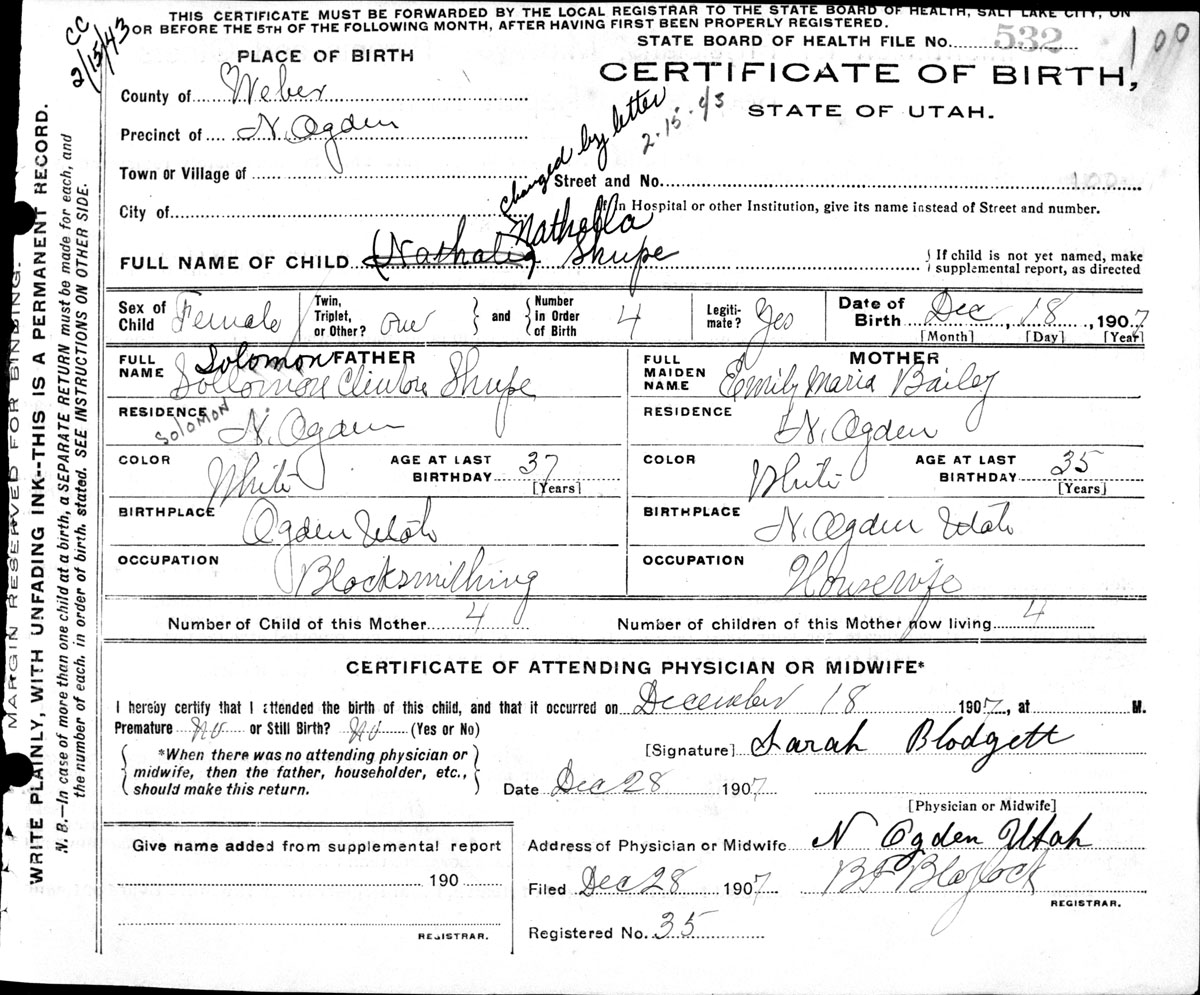 THIS CERTIFICATE MUST BE FORWARDED BY THE LOCAL REGISTRAR TO THE STATE BOARD OF HEALTH, SALT LAKE CITY, ON
OR BEFORE THE 5TH OF THE FOLLOWING MONTH, AFTER HAVING FIRST BEEN PROPERLY REGISTERED.
CC
2/15/43
STATE BOARD OF HEALTH FILE No. 532
100
PLACE OF BIRTH
CERTIFICATE OF BIRTH,
STATE OF UTAH.
County of Weber
Precinct of N. Ogden
Town or Village of
changed by letter
2-15-43
Street and No.
100
City of
If in Hospital or other Institution, give its name instead of Street and number.
Nathella
FULL NAME OF CHILD (Nathalia) Shupe
If child is not yet named, make
supplemental report, as directed
Sex of Child Female
Twin, Triplet, or Other? one
and
Number in Order of Birth 4
Legiti- mate? Yes
Date of Birth Dec, 18, 1907
[Month] [Day] [Year]
FULL NAME
FATHER
Solomon
Sollomon Clinton Shupe
FULL MAIDEN NAME
MOTHER
Emily Maria Bailey
RESIDENCE
Solomon
N. Ogden
RESIDENCE
N. Ogden
COLOR White
AGE AT LAST BIRTHDAY 37
[Years]
COLOR White
AGE AT LAST BIRTHDAY 35
[Years]
BIRTHPLACE
Ogden Utah
BIRTHPLACE
N. Ogden Utah
OCCUPATION
Blacksmithing
OCCUPATION
Housewife
Number of Child of this Mother 4
Number of children of this Mother now living 4
CERTIFICATE OF ATTENDING PHYSICIAN OR MIDWIFE*
I hereby certify that I attended the birth of this child, and that it occurred on December 18 1907, at M.
Premature No or Still Birth? No (Yes or No)
*When there was no attending physician or
midwife, then the father, householder, etc.,
should make this return.
[Signature] Sarah Blodgett
Date Dec 28 1907
[Physician or Midwife]
Give name added from supplemental report
190
REGISTRAR.
Address of Physician or Midwife N Ogden Utah
Filed Dec 28 1907 BF Blaylock
REGISTRAR.
Registered No. 35
MARGIN RESERVED FOR BINDING.
WRITE PLAINLY, WITH UNFADING INK--THIS IS A PERMANENT RECORD.
N. B.—In case of more than one child at a birth, a SEPARATE RETURN must be made for each, and
the number of each, in order of birth, stated. SEE INSTRUCTIONS ON OTHER SIDE.